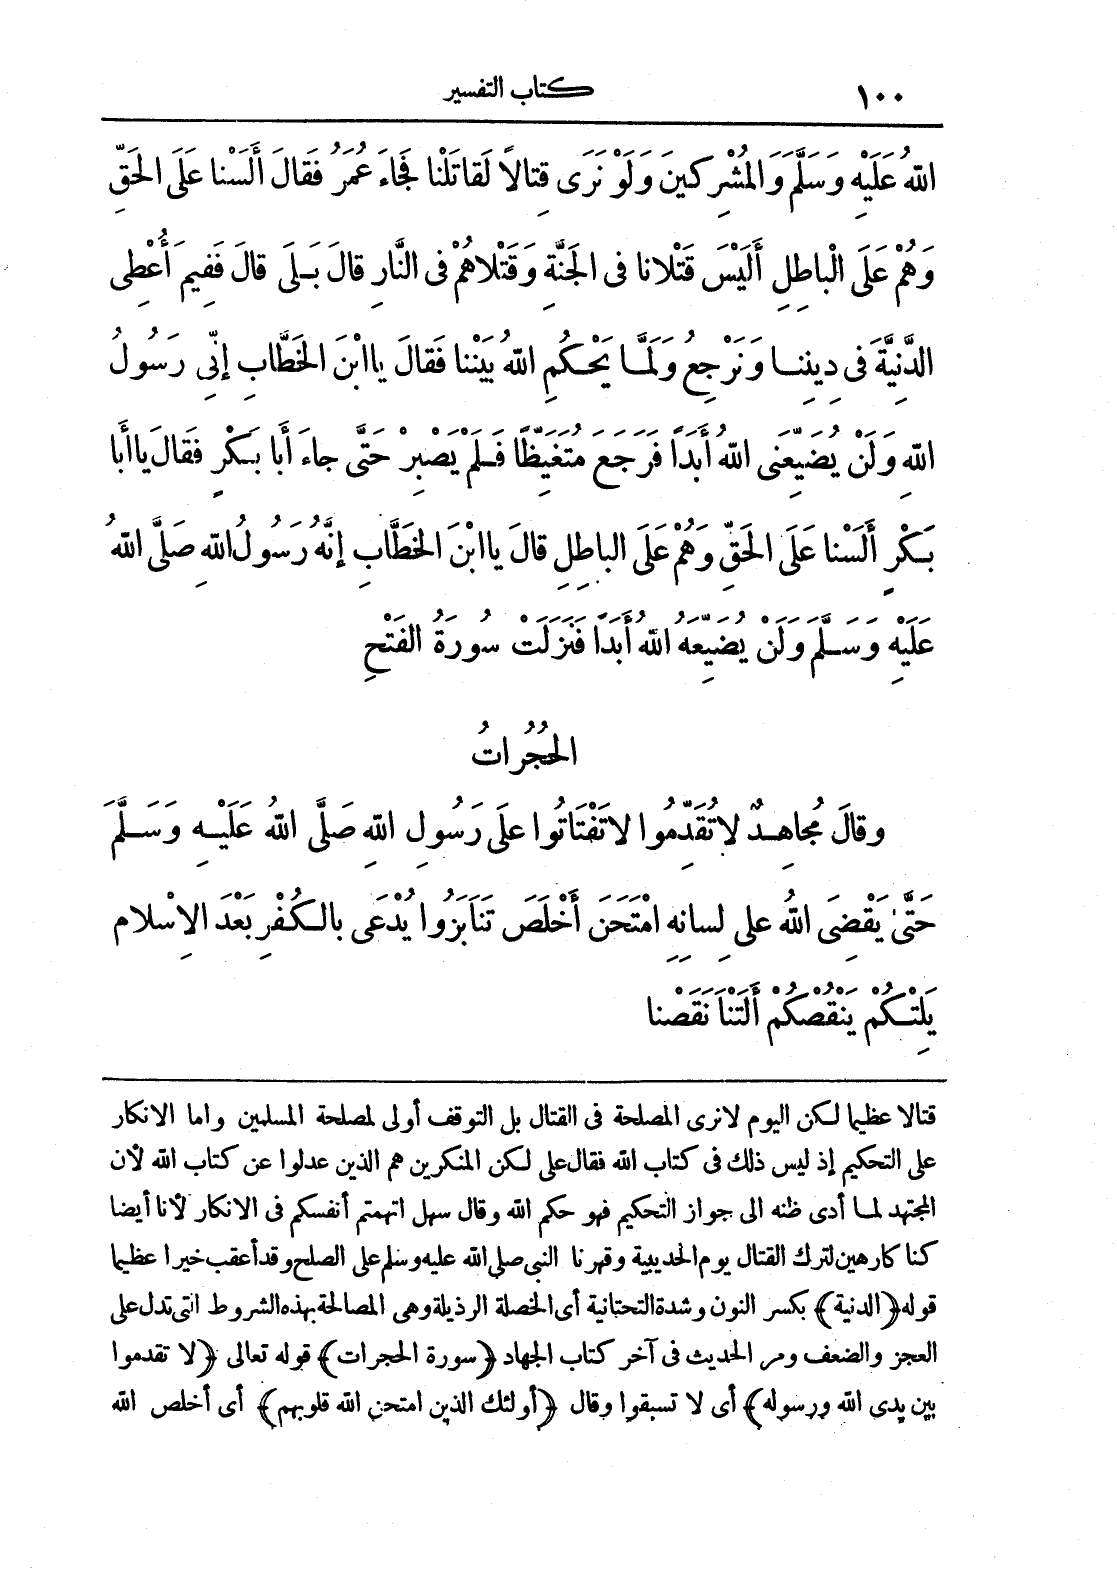 ١٠٠ كتاب التفسير
اللهُ عَلَيْهِ وَسَلَّمَ وَالمُشْرِكِينَ وَلَوْ نَرَى قِتالاً لَقاتَلْنا فَجَاءَ عُمَرُ فَقالَ أَلَسْنا عَلَى الحَقِّ
وَهُمْ عَلَى الْباطِلِ أَلَيْسَ قَتْلانا فى الجَنَّةِ وَقَتْلاهُمْ فى النَّارِ قالَ بَلَى قالَ فَفِيمَ أُعْطِى
الدَّنِيَّةَ فى دِينِنا وَنَرْجِعُ وَلَمَّا يَحْكُمِ اللهُ بَيْنَنا فَقالَ ياابْنَ الخَطَّابِ إِنِّى رَسُولُ
اللهِ وَلَنْ يُضَيِّعَنى اللهُ أَبَدًا فَرَجَعَ مُتَغَيِّظًا فَلَمْ يَصْبِرْ حَتَّى جاءَ أَبا بَكْرٍ فَقالَ ياأَبا
بَكْرٍ أَلَسْنا عَلَى الحَقِّ وَهُمْ عَلَى الباطِلِ قالَ ياابْنَ الخَطَّابِ إِنَّهُ رَسُولُ اللهِ صَلَّى اللهُ
عَلَيْهِ وَسَلَّمَ وَلَنْ يُضَيِّعَهُ اللهُ أَبَدًا فَنَزَلَتْ سُورَةُ الفَتْحِ
الحُجُرَاتُ
وقالَ مُجاهِدٌ لاتُقَدِّمُوا لاتَفْتَاتُوا علَى رَسُولِ اللهِ صَلَّى اللهُ عَلَيْهِ وَسَلَّمَ
حَتَّى يَقْضِىَ اللهُ على لِسانِهِ امْتَحَنَ أَخْلَصَ تَنَابَزُوا يُدْعَى بالكُفْرِ بَعْدَ الاِسْلام
يَلِتْكُمْ يَنْقُصْكُمْ أَلَتْنا نَقَصْنا
قتالا عظيما لكن اليوم لانرى المصلحة فى القتال بل التوقف أولى لمصلحة المسلمين واما الانكار
على التحكيم إذ ليس ذلك فى كتاب الله فقال على لكن المنكرين هم الذين عدلوا عن كتاب الله لأن
المجتهد لما أدى ظنه الى جواز التحكيم فهو حكم الله وقال سهل اتهمتم أنفسكم فى الانكار لأنا أيضا
كنا كارهين لترك القتال يوم الحديبية وقهرنا النبى صلى الله عليه وسلم على الصلح وقد أعقب خيرا عظيما
قوله ﴿الدنية﴾ بكسر النون وشدة التحتانية أى الخصلة الرذيلة وهى المصالحة بهذه الشروط التى تدل على
العجز والضعف ومر الحديث فى آخر كتاب الجهاد ﴿سورة الحجرات﴾ قوله تعالى ﴿لا تقدموا
بين يدى الله ورسوله﴾ أى لا تسبقوا وقال ﴿أولئك الذين امتحن الله قلوبهم﴾ أى أخلص الله